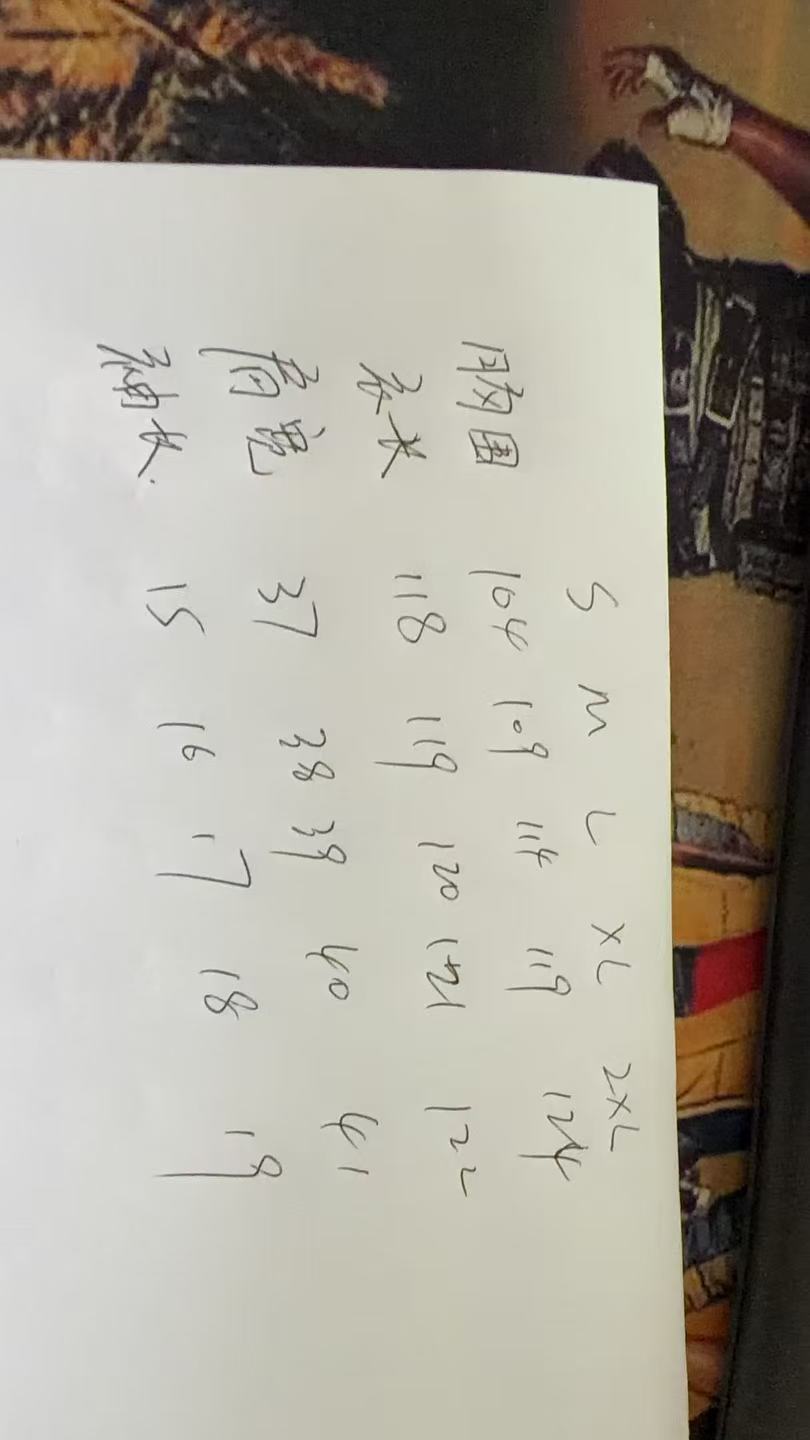 S M L XL 2XL
胸围 104 109 114 119 124
衣长 118 119 120 121 122
肩宽 37 38 39 40 41
袖长 15 16 17 18 19